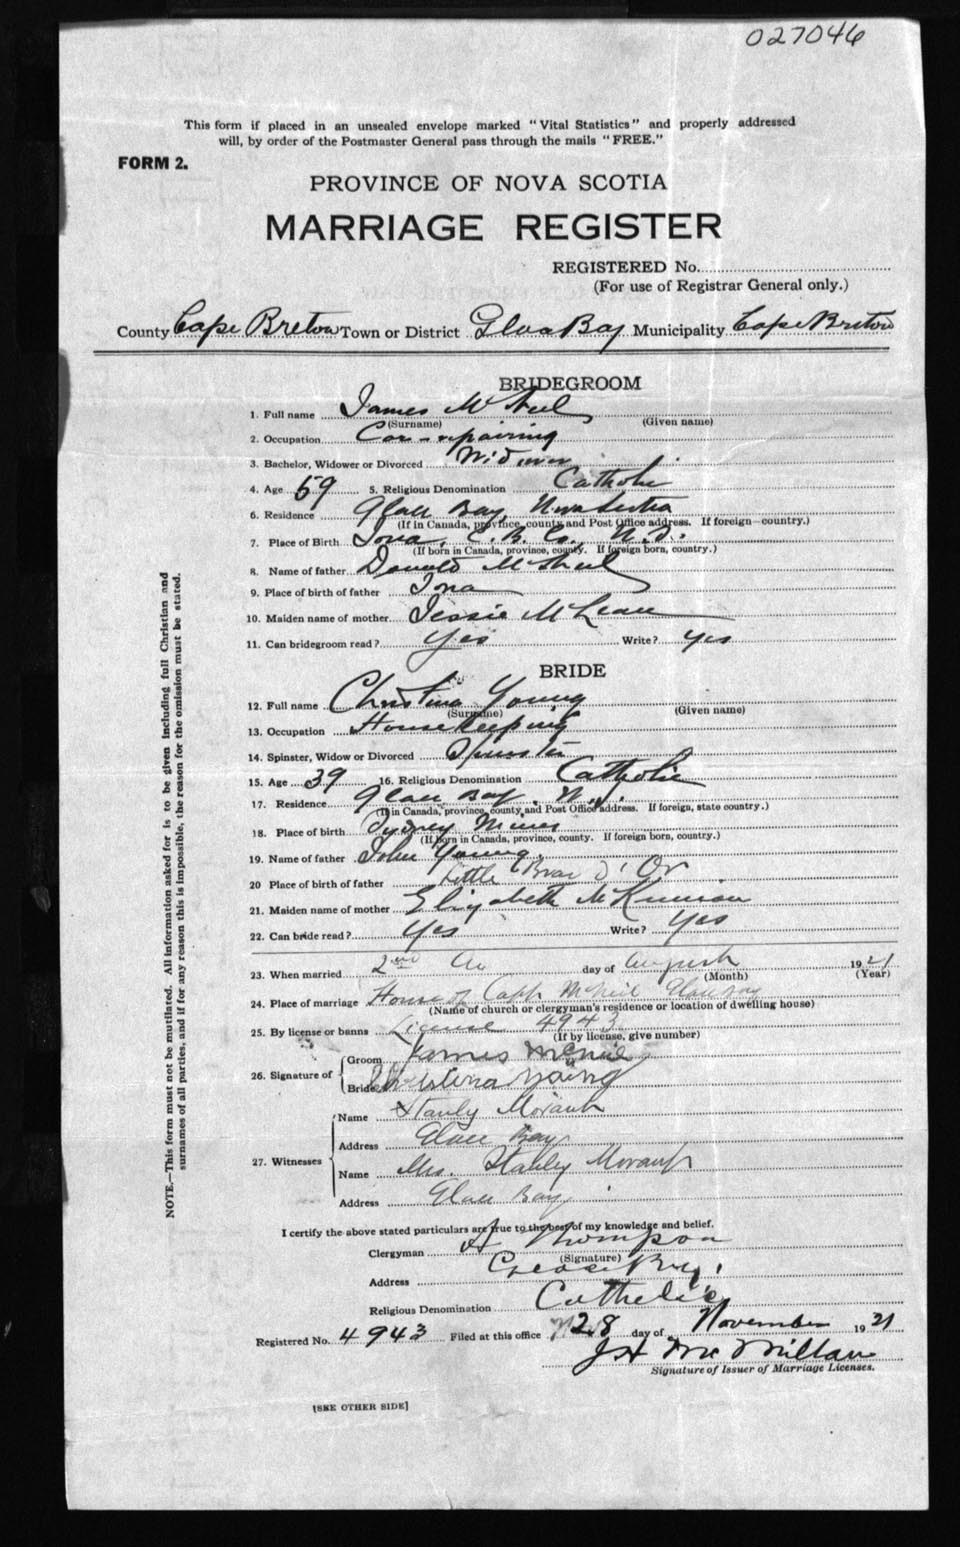 027046
This form if placed in an unsealed envelope marked "Vital Statistics" and properly addressed
will, by order of the Postmaster General pass through the mails "FREE."
FORM 2.
PROVINCE OF NOVA SCOTIA
MARRIAGE REGISTER
REGISTERED No.
(For use of Registrar General only.)
County Cape Breton Town or District Glace Bay Municipality Cape Breton
BRIDEGROOM
1. Full name James McNeil
(Surname) (Given name)
2. Occupation Car-repairing
3. Bachelor, Widower or Divorced Widower
4. Age 59 5. Religious Denomination Catholic
6. Residence Glace Bay, Nova Scotia
(If in Canada, province, county and Post Office address. If foreign—country.)
7. Place of Birth Iona, C. B. Co., N.S.
(If born in Canada, province, county. If foreign born, country.)
8. Name of father Donald McNeil
9. Place of birth of father Iona
10. Maiden name of mother Jessie McLean
11. Can bridegroom read? Yes Write? yes
BRIDE
12. Full name Christina Young
(Surname) (Given name)
13. Occupation Housekeeping
14. Spinster, Widow or Divorced Spinster
15. Age 39 16. Religious Denomination Catholic
17. Residence Glace Bay, N.S.
(If in Canada, province, county and Post Office address. If foreign, state country.)
18. Place of birth Sydney Mines
(If born in Canada, province, county. If foreign born, country.)
19. Name of father John Young
20 Place of birth of father Little Bras d'Or
21. Maiden name of mother Elizabeth McKinnon
22. Can bride read? Yes Write? Yes
23. When married 2nd day of August 1921
(Month) (Year)
24. Place of marriage House of McNeil Glace Bay
(Name of church or clergyman's residence or location of dwelling house)
25. By license or banns License 4943
(If by license, give number)
26. Signature of
Groom James McNeil
Bride Christina Young
27. Witnesses
Name Stanly
Address Glace Bay
Name Mrs. Stanley
Address Glace Bay
I certify the above stated particulars are true to the best of my knowledge and belief.
Clergyman Thompson
(Signature)
Address Glace Bay
Religious Denomination Catholic
Registered No. 4943 Filed at this office 28 day of November 1921
JH McMillan
Signature of Issuer of Marriage Licenses.
[SEE OTHER SIDE]
NOTE.—This form must not be mutilated. All information asked for is to be given including full Christian and
surnames of all parties, and if for any reason this is impossible, the reason for the omission must be stated.